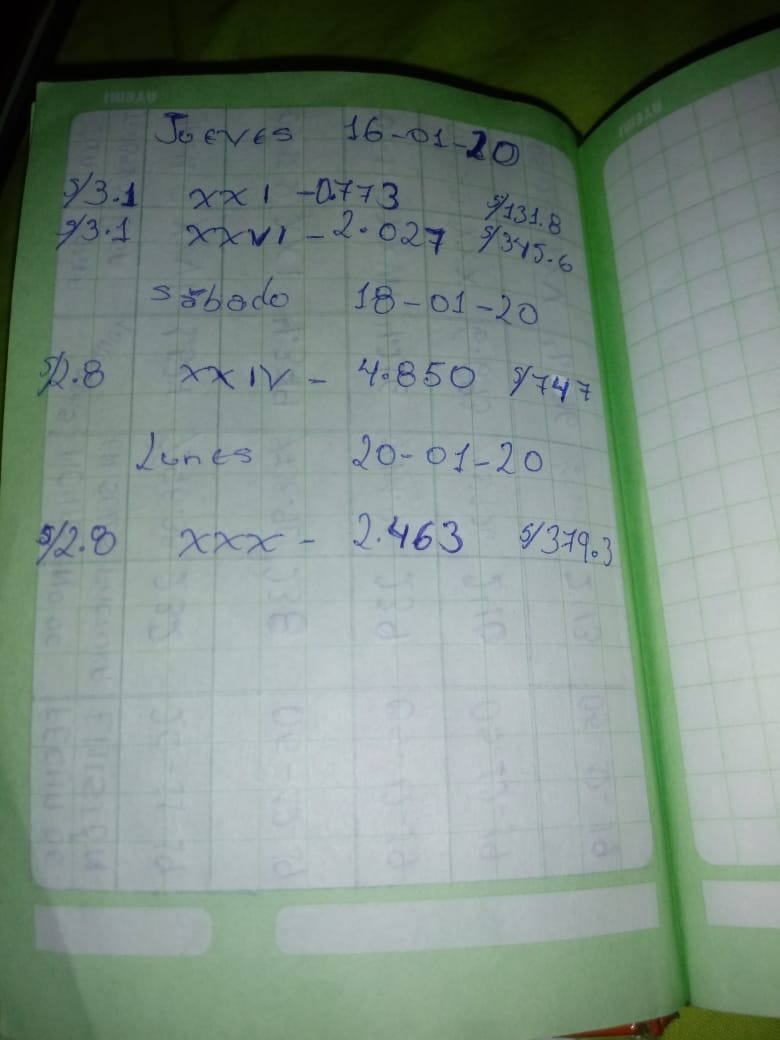 Jueves 16-01-20
S/3.1 XXI - 0.773 S/131.8
S/3.1 XXVI - 2.027 S/345.6
Sábado 18-01-20
S/2.8 XXIV - 4.850 S/747
Lunes 20-01-20
S/2.8 XXX - 2.463 S/379.3